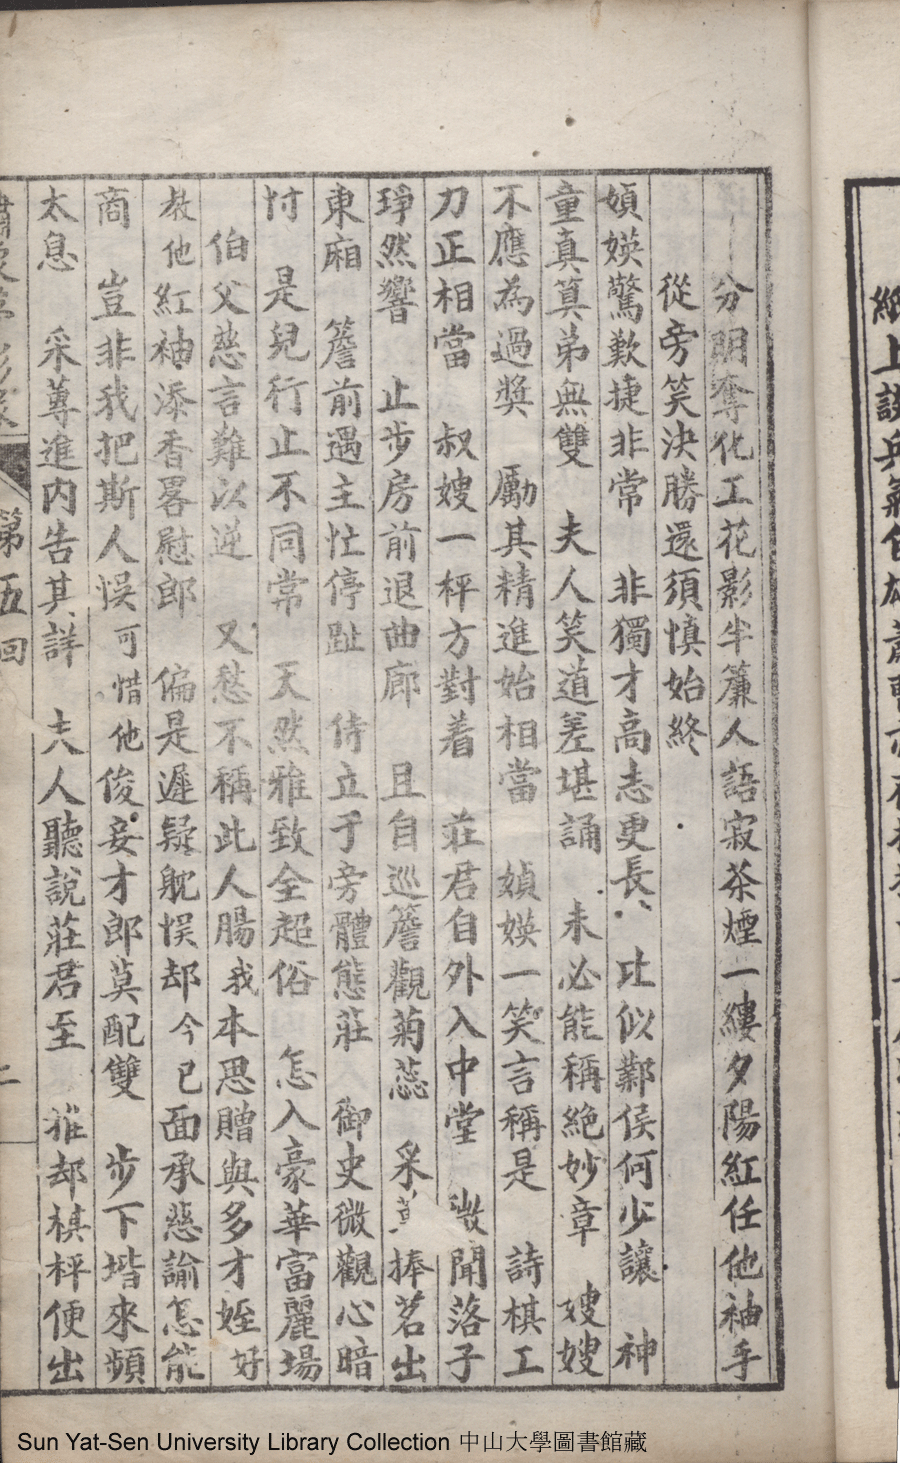 紙上談兵氣
分明奪化工花影半簾人語寂茶煙一縷夕陽紅任他袖手
從旁笑決勝還須慎始終
媜媖驚歎捷非常　非獨才高志更長　比似鄴侯何少讓　神
童真箕弟無雙　夫人笑道差堪誦　未必能稱絶妙章　嫂嫂
不應為過獎　勵其精進始相當　媜媖一笑言稱是　詩棋工
力正相當　叔嫂一枰方對着　莊君自外入中堂　微聞落子
琤然響　止步房前退曲廊　且自巡簷觀菊蕊　采捧茗出
東廂　簷前遇主忙停趾　侍立于旁體態莊　御史微觀心暗
忖　是兒行止不同常　天然雅致全超俗　怎入豪華富麗場
伯父慈言難以逆　又愁不稱此人腸我本思贈與多才姪好
教他紅袖添香畧慰郎　偏是遲疑躭悮却今已面承慈諭怎能
商　豈非我把斯人悮可惜他俊妾才郎莫配雙　步下堦來頻
太息　采蓴進内告其詳　夫人聽説莊君至　推却棋枰便出
第五回
二
Sun Yat-Sen University Library Collection 中山大學圖書館藏